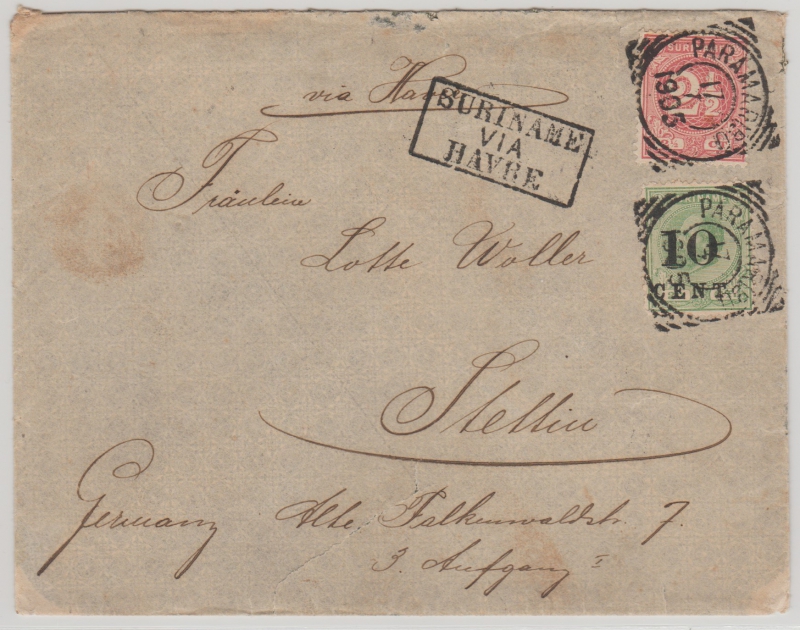 via Havre
SURINAME
VIA
HAVRE
SURINAME
2½
PARAMARIBO
17
1905
10
CENT
PARAMARIBO
Fräulein
Lotte Woller
Stettin
Germany
Alte Falkenwaldstr. 7.
3. Aufgang I